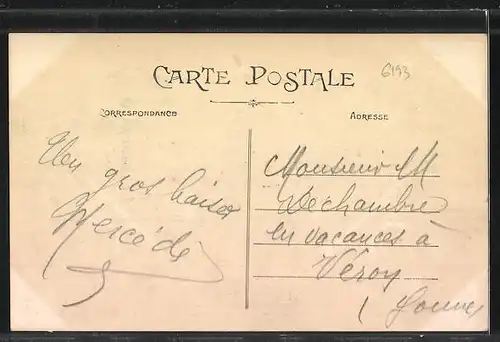 CARTE POSTALE
6193
CORRESPONDANCE
ADRESSE
Un gros baiser
Mercédès
Monsieur M
Dechambre
en vacances à
Véron
(Yonne